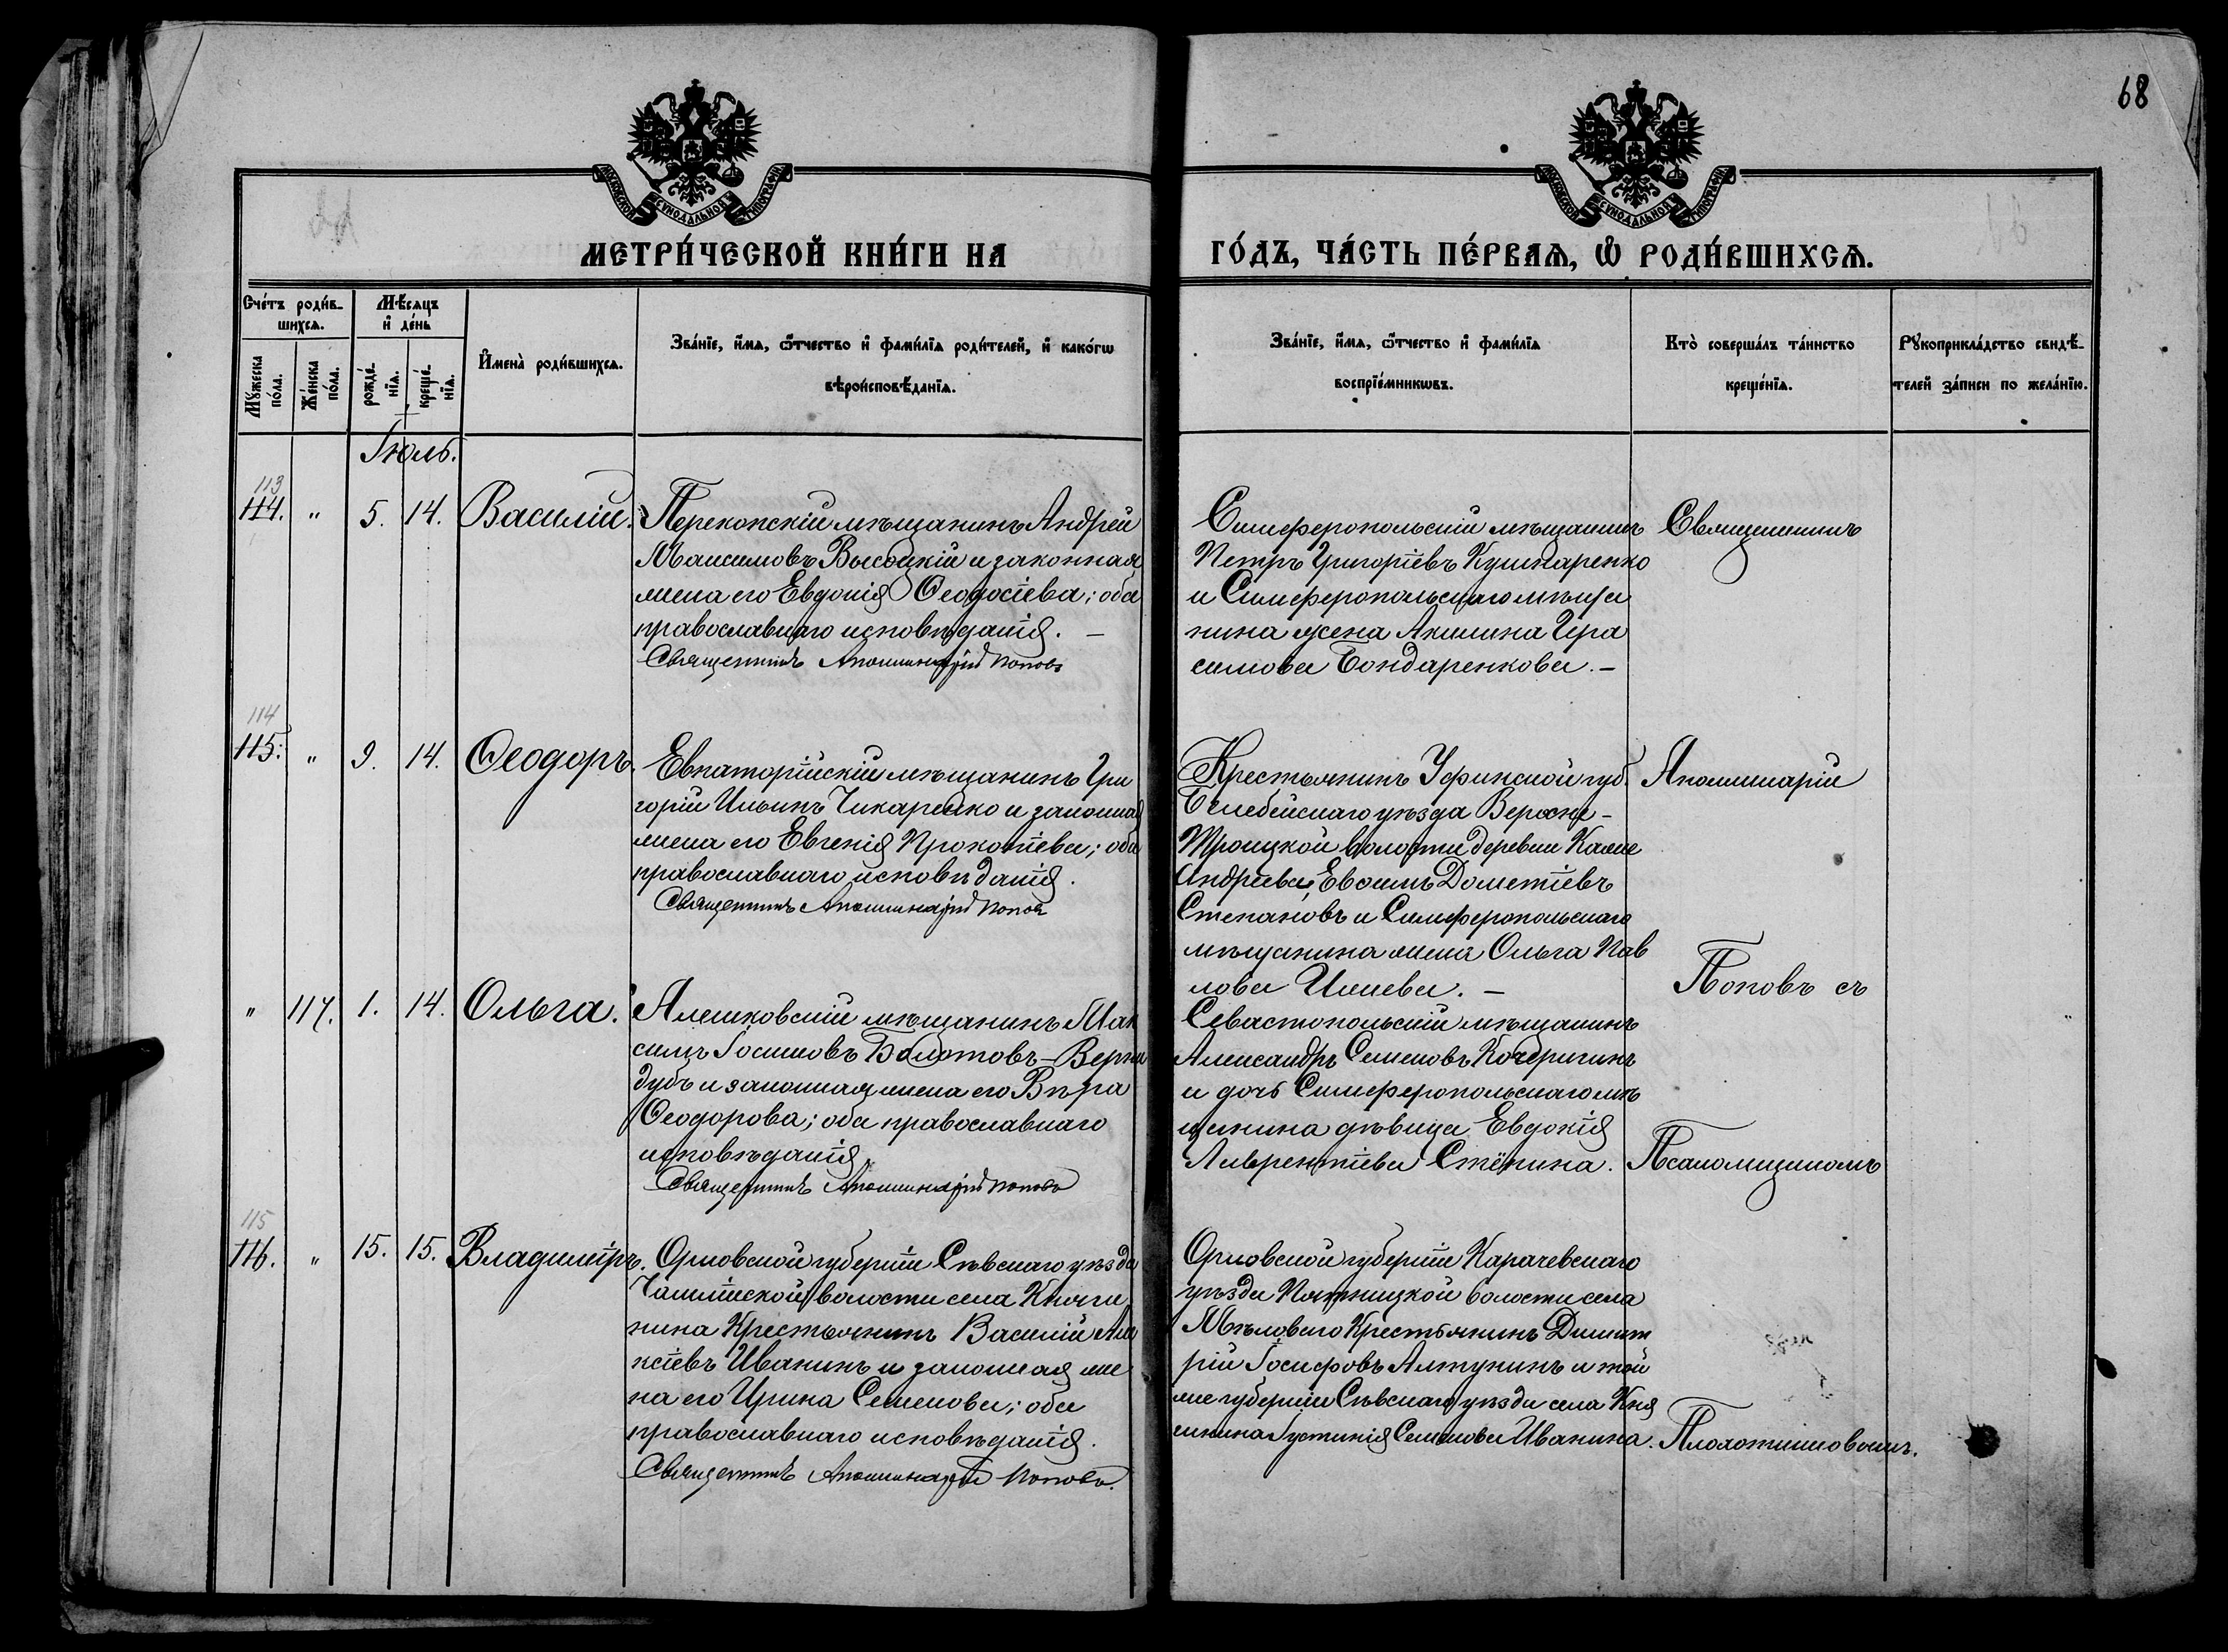 68
МОСКОВСКОЙ СУНОДАЛЬНОЙ ТИПОГРАФІИ
МОСКОВСКОЙ СУНОДАЛЬНОЙ ТИПОГРАФІИ
МЕТРИ́ЧЕСКОЙ КНИ́ГИ НА
ГО́ДЪ, ЧА́СТЬ ПЕ́РВАѦ, Ѡ РОДИ́ВШИХСѦ.
Сче́тъ роди́в-
шихсѧ.
Мѣ́сѧцъ
и де́нь
Мꙋ́жеска
по́ла.
Же́нска
по́ла.
рожде́-
нїѧ.
креще́-
нїѧ.
Имена̀ роди́вшихсѧ.
Зва́нїе, и́мѧ, ѻ́тчество и фами́лїѧ роди́телей, и како́гѡ
вѣроисповѣ́данїѧ.
Зва́нїе, и́мѧ, ѻ́тчество и фами́лїѧ
воспрїе́мникѡвъ.
Кто̀ соверша́лъ та́инство
креще́нїѧ.
Рꙋкоприкла́дство свидѣ́-
телей за́писи по жела́нїю.
Іюль.
113
114. " 5. 14. Василій. Перекопскій мѣщанинъ Андрей
Максимовъ Высоцкій и законная
жена его Евдокія Ѳеодосіева; оба
православнаго исповѣданія. —
Священникъ Аполлинарій Поповъ
Симферопольскій мѣщанинъ
Петръ Григоріевъ Кушнаренко
и Симферопольскаго мѣща
нина жена Акилина Гера
симова Бондаренкова. —
Священникъ
114
115. " 9. 14. Ѳеодоръ. Евпаторійскій мѣщанинъ Гри
горій Ильинъ Чикаренко и законная
жена его Евгенія Прокопіева; оба
православнаго исповѣданія.
Священникъ Аполлинарій Поповъ
Крестьянинъ Уфимской губ.
Белебейскаго уѣзда Верхне-
Троицкой волости деревни
Андреева, Дометіевъ
Степановъ и Симферопольскаго
мѣщанина жена Ольга Пав
лова
Аполлинарій
Поповъ съ
" 117. 1. 14. Ольга. Алешковскій мѣщанинъ Мак
симъ Іосифовъ Болотовъ-Верни
дубъ и законная жена его Вѣра
Ѳеодорова; оба православнаго
исповѣданія.
Священникъ Аполлинарій Поповъ
Севастопольскій мѣщанинъ
Александръ Семеновъ Кочергинъ
и дочь Симферопольскаго мѣ
щанина дѣвица Евдокія
Лаврентіева Стёпина.
Псаломщикомъ
115
116. " 15. 15. Владиміръ. Орловской губерніи Сѣвскаго уѣзда
волости села Княги
нина Крестьянинъ Василій Але
ксіевъ Иванинъ и законная же
на его Ирина Семенова; оба
православнаго исповѣданія.
Священникъ Аполлинарій Поповъ.
Орловской губерніи Карачевскаго
уѣзда Пятницкой волости села
Мѣловаго Крестьянинъ Димит
рій Іосифовъ Алтунинъ и той
же губерніи Сѣвскаго уѣзда села Кня
гинина Іустинія Семенова Иванина.